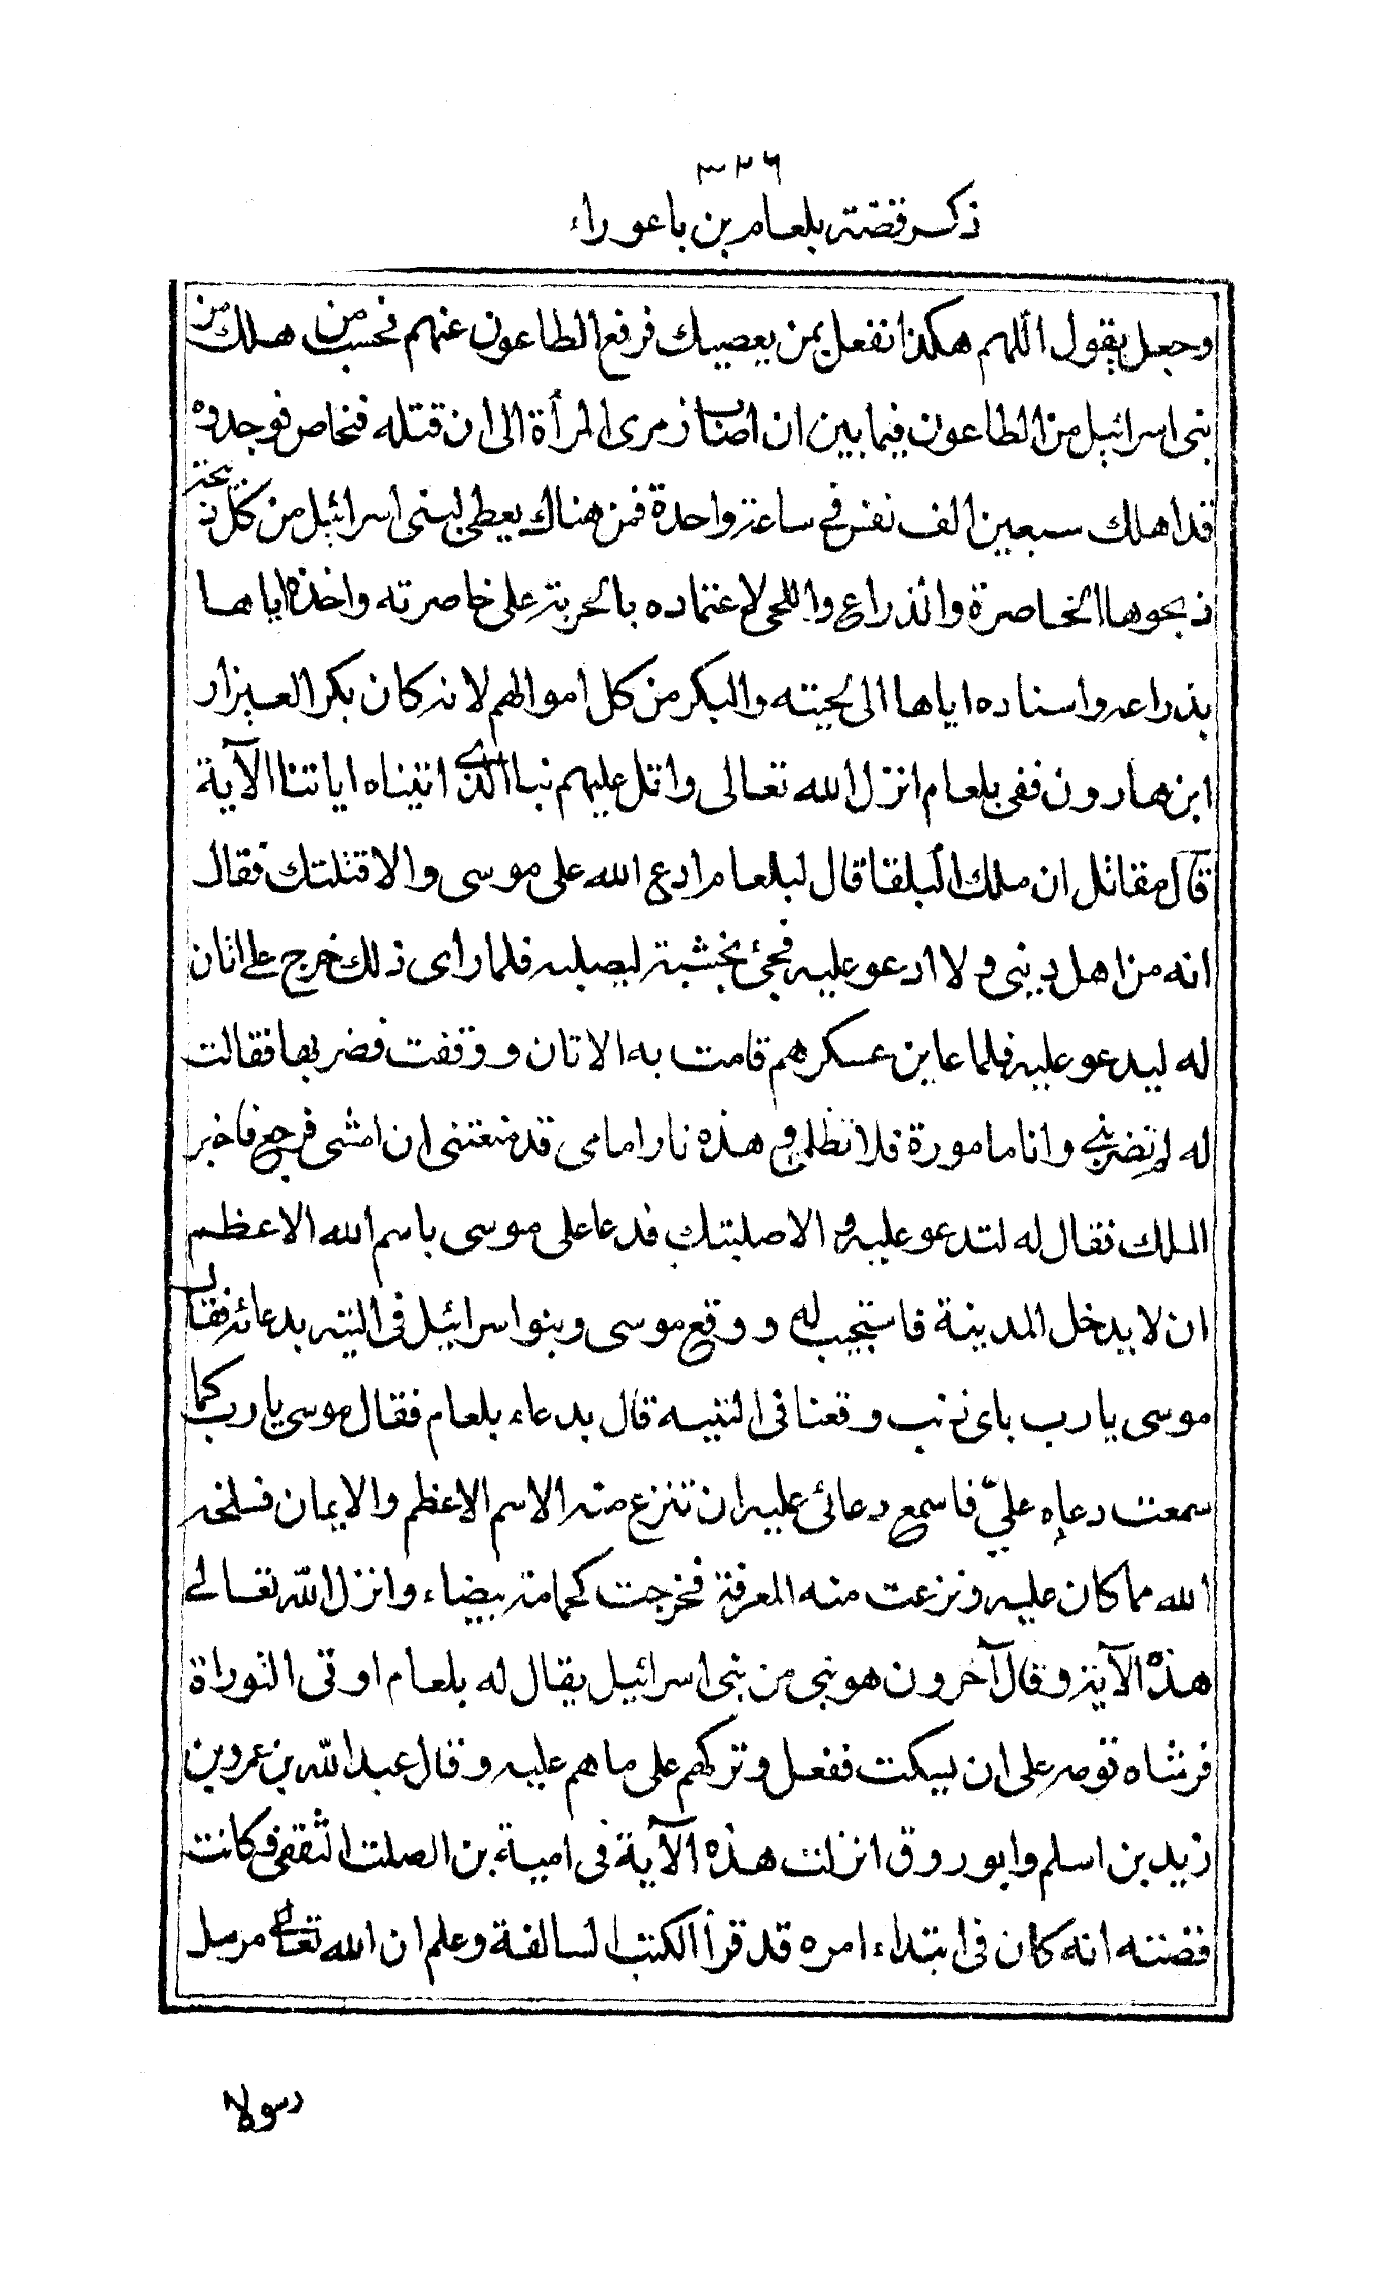 ٣٢٦
ذكر قصة بلعام بن باعوراء
وجعل يقول اللهم هكذا نفعل بمن يعصيك فرفع الطاعون عنهم فحسب من هلك من
بنى اسرائيل من الطاعون فيما بين ان اصاب زمرى المرأة الى ان قتله فنحاص فوجدوه
قد اهلك سبعين الف نفس فى ساعة واحدة فمن هناك يعطى لبنى اسرائيل من كل ذبيحة
ذبحوها الخاصرة والذراع واللحى لاعتماده بالحربة على خاصرته واخذه اياها
بذراعه واسناده اياها الى لحيته والبكر من كل اموالهم لانه كان بكر العيزار
ابن هارون ففى بلعام انزل الله تعالى واتل عليهم نبا الذى اتيناه اياتنا الآية
قال مقاتل ان ملك البلقا قال لبلعام ادع الله على موسى والا قتلتك فقال
انه من اهل دينى ولا ادعو عليه فجئ بخشبة ليصلبه فلما راى ذلك خرج على اتان
له ليدعو عليه فلما عاين عسكرهم قامت به الاتان ووقفت فضربها فقالت
له لم تضربنى وانا مامورة فلا تظلمنى هذه نار امامى قد منعتنى ان امشى فرجع فاخبر
الملك فقال له لتدعو عليه والا صلبتك فدعا على موسى باسم الله الاعظم
ان لا يدخل المدينة فاستجيب له ووقع موسى وبنو اسرائيل فى التيه بدعائه فقال
موسى يا رب باى ذنب وقعنا فى التيه قال بدعاء بلعام فقال موسى يا رب كما
سمعت دعاءه علىّ فاسمع دعائى عليه ان تنزع منه الاسم الاعظم والايمان فسلخه
الله مما كان عليه ونزعت منه المعرفة فخرجت كحمامة بيضاء وانزل الله تعالى
هذه الآية وقال آخرون هو نبى من بنى اسرائيل يقال له بلعام اوتى التوراة
فرشاه قومه على ان يسكت ففعل وتركهم على ما هم عليه وقال عبد الله بن عمرو بن
زيد بن اسلم وابو روق انزلت هذه الآية فى امية بن الصلت الثقفى وكانت
قصته انه كان فى ابتداء امره قد قرأ الكتب السالفة وعلم ان الله تعالى مرسل
رسولا